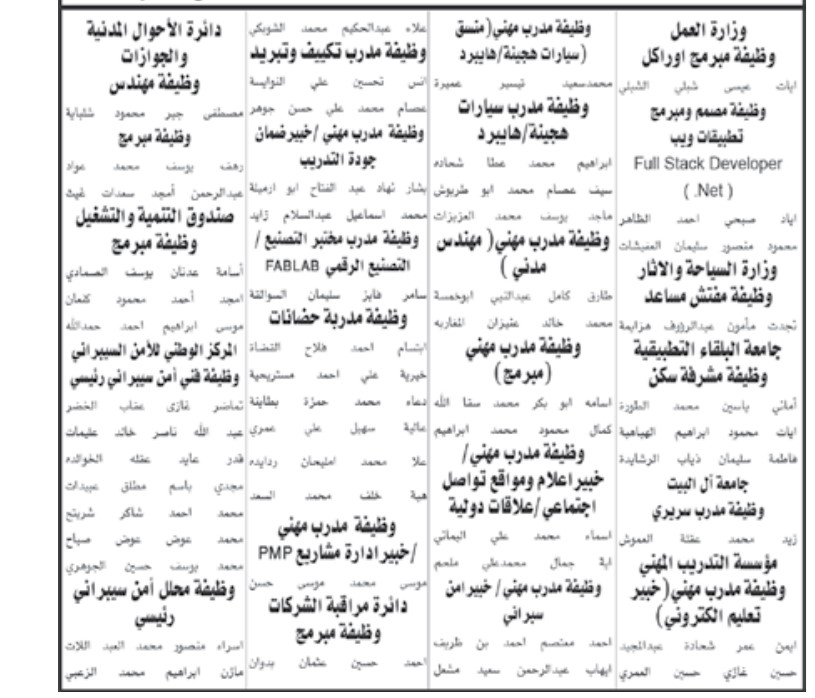 وزارة العمل
وظيفة مبرمج اوراكل
ايات عيسى شبلي الشبلي
وظيفة مصمم ومبرمج
تطبيقات ويب
Full Stack Developer
( .Net )
اياد صبحي احمد الظاهر
محمود منصور سليمان
وزارة السياحة والاثار
وظيفة مفتش مساعد
نجدت مأمون عبدالرؤوف هزايمة
جامعة البلقاء التطبيقية
وظيفة مشرفة سكن
أماني ياسين محمد الطورة
ايات محمود ابراهيم الهباهبة
فاطمة سليمان ذياب الرشايدة
جامعة آل البيت
وظيفة مدرب سريري
زيد محمد عقلة العموش
مؤسسة التدريب المهني
وظيفة مدرب مهني(خبير
تعليم الكتروني)
ايمن عمر شحادة عبدالمجيد
حسين غازي حسين العمري
وظيفة مدرب مهني( منسق
سيارات هجينة/هايبرد )
محمدسعيد تيسير عميرة
وظيفة مدرب سيارات
هجينة/هايبرد
ابراهيم محمد عطا شحاده
سيف عصام محمد ابو طربوش
ماجد يوسف محمد العزيزات
وظيفة مدرب مهني( مهندس
مدني )
طارق كامل عبدالنبي ابوخمسة
محمد خالد عليزان المغاربه
وظيفة مدرب مهني
(مبرمج)
اسامه ابو بكر محمد سقا الله
كمال محمود محمد ابراهيم
وظيفة مدرب مهني/
خبير اعلام ومواقع تواصل
اجتماعي/علاقات دولية
اسماء محمد علي اليماني
اية جمال محمدعلي ملحم
وظيفة مدرب مهني/ خبير امن
سبراني
احمد معتصم احمد بن طريف
ايهاب عبدالرحمن سعيد مشعل
علاء عبدالحكيم محمد الشوبكي
وظيفة مدرب تكييف وتبريد
انس تحسين علي النوايسة
عصام محمد علي حسن جوهر
وظيفة مدرب مهني /خبيرضمان
جودة التدريب
بشار نهاد عبد الفتاح ابو ارميلة
محمد اسماعيل عبدالسلام زايد
وظيفة مدرب مختبر التصنيع /
التصنيع الرقمي FABLAB
سامر فايز سليمان السوالقة
وظيفة مدربة حضانات
ابتسام احمد فلاح القضاة
خيرية علي احمد مستريحية
دعاء محمد حمزة بطاينة
عالية سهيل علي عمري
علا محمد امليحان ردايده
هبة خلف محمد السعد
وظيفة مدرب مهني
/خبير ادارة مشاريع PMP
موسى محمد موسى حسن
دائرة مراقبة الشركات
وظيفة مبرمج
احمد حسين عثمان بدوان
دائرة الأحوال المدنية
والجوازات
وظيفة مهندس
مصطفى جبر محمود شلباية
وظيفة مبرمج
رهف يوسف محمد عواد
عبدالرحمن أمجد سعدات غيث
صندوق التنمية والتشغيل
وظيفة مبرمج
أسامة عدنان يوسف الصمادي
امجد أحمد محمود كلمان
موسى ابراهيم احمد حمدالله
المركز الوطني للأمن السيبراني
وظيفة فني أمن سيبراني رئيسي
تماضر غازي عقاب الخضر
عبد الله ناصر خالد عليمات
قدر عايد عقله الخوالده
مجدي باسم مطلق عبيدات
محمد احمد شاكر شرينح
محمد عوض عوض صباح
محمد يوسف حسين الجوهري
وظيفة محلل أمن سيبراني
رئيسي
اسراء منصور محمد العبد اللات
مازن ابراهيم محمد الزعبي